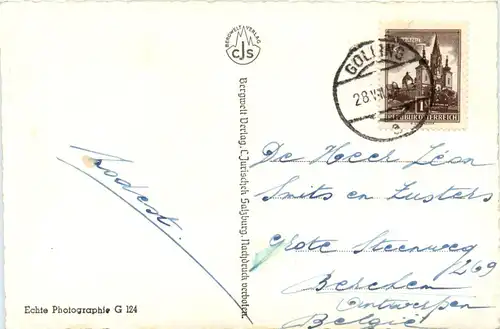 BERGWELT-VERLAG
CJS
GOLLING
28.VII
e
REPUBLIK ÖSTERREICH
Bergwelt Verlag, C. Jurischek Salzburg. Nachdruck verboten.
De Heer Léon
Smits en Zusters
Grote Steenweg
269
Berchem
Antwerpen
België
Modest.
Echte Photographie G 124